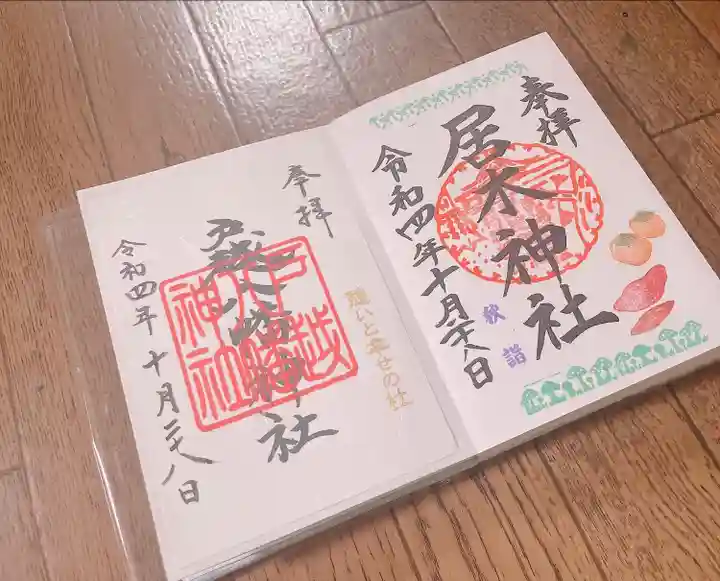 奉拝
居木神社
令和四年十月二十八日
秋詣
奉拝
戸越八幡神社
戸越八幡神社
願いと幸せの社
令和四年十月二十八日